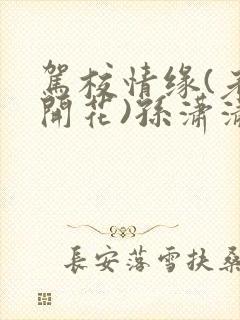 驾校情缘(
開花)孫潇
長安落雪扶桑